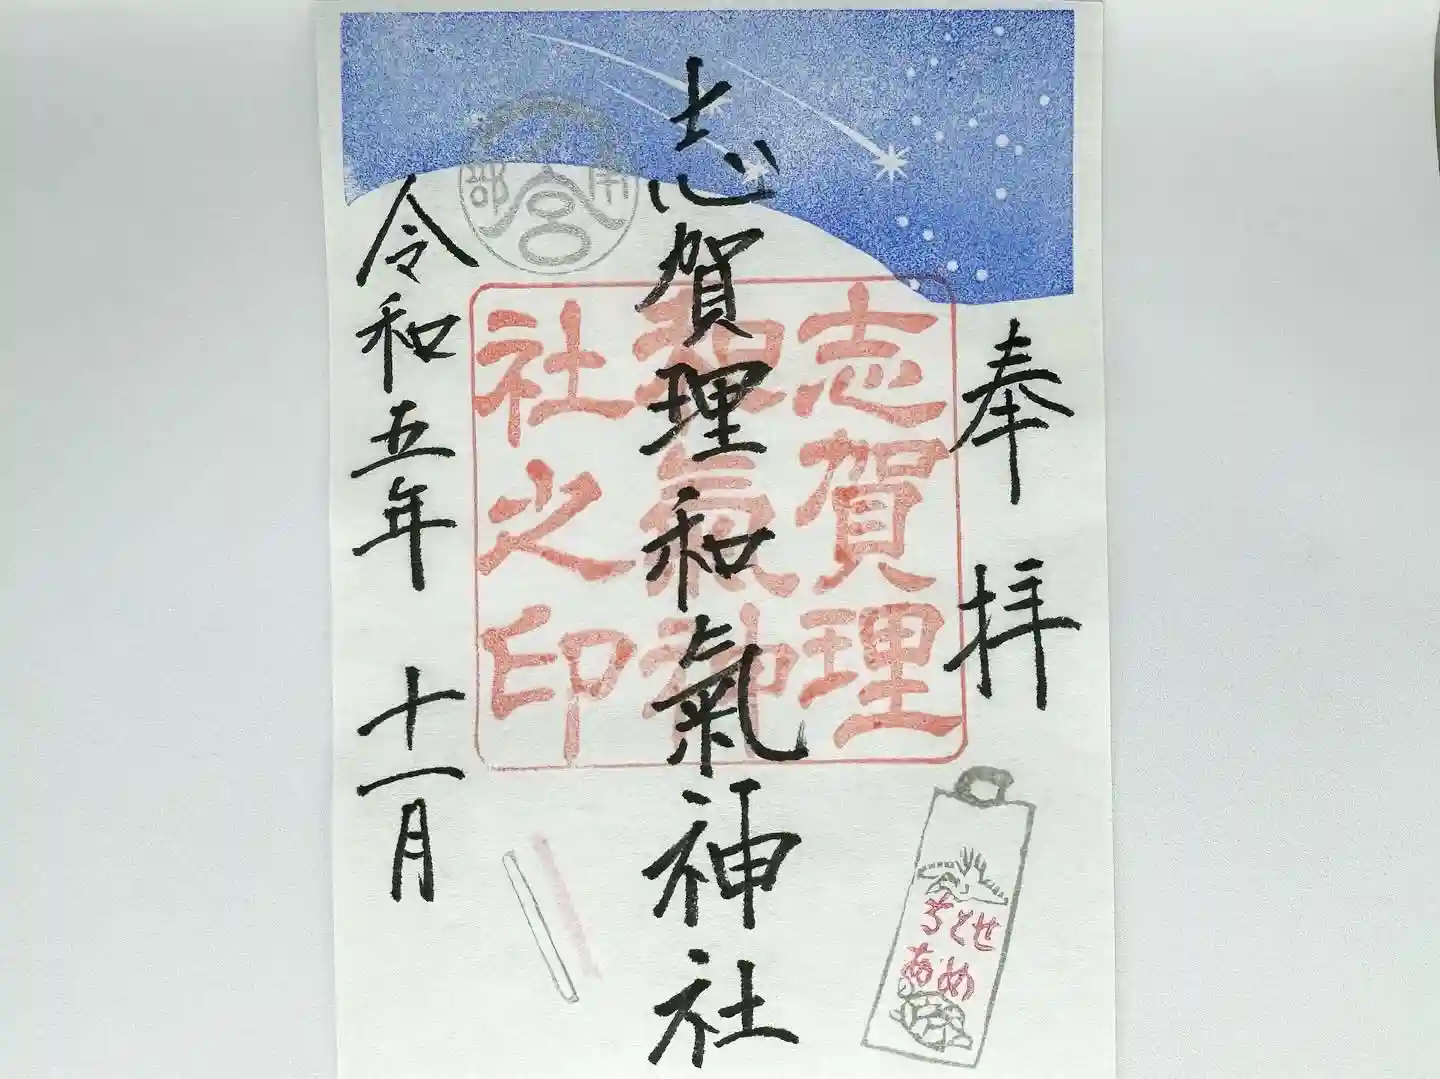 奉拝
志賀理和氣神社
令和五年 十一月
志賀理
和氣神
社之印
ちとせ
あめ